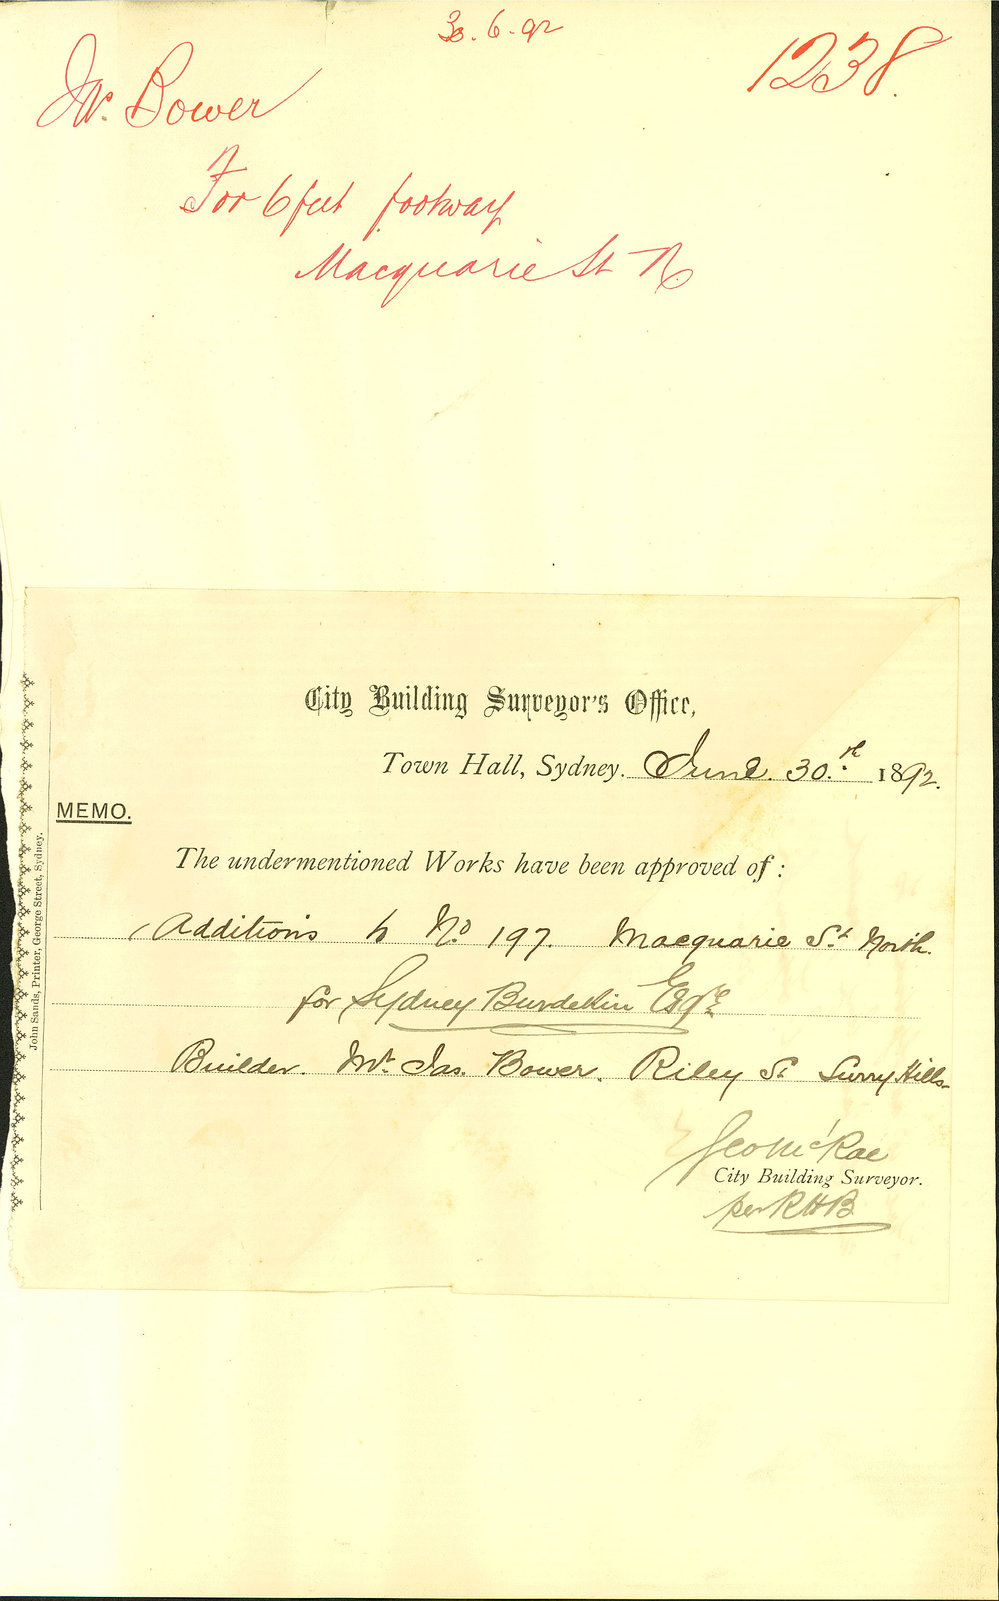 30.6.92
1238.
Mr. Bower
For 6 feet footway
Macquarie St N.
City Building Surveyor's Office,
Town Hall, Sydney. June 30th. 1892.
MEMO.
The undermentioned Works have been approved of:
Additions to No 197. Macquarie St. North.
for Sydney Burdekin Esqre
Builder. Mr. Jas. Bower. Riley St Surry Hills
Geo McRae
City Building Surveyor.
per RHB
John Sands, Printer, George Street, Sydney.